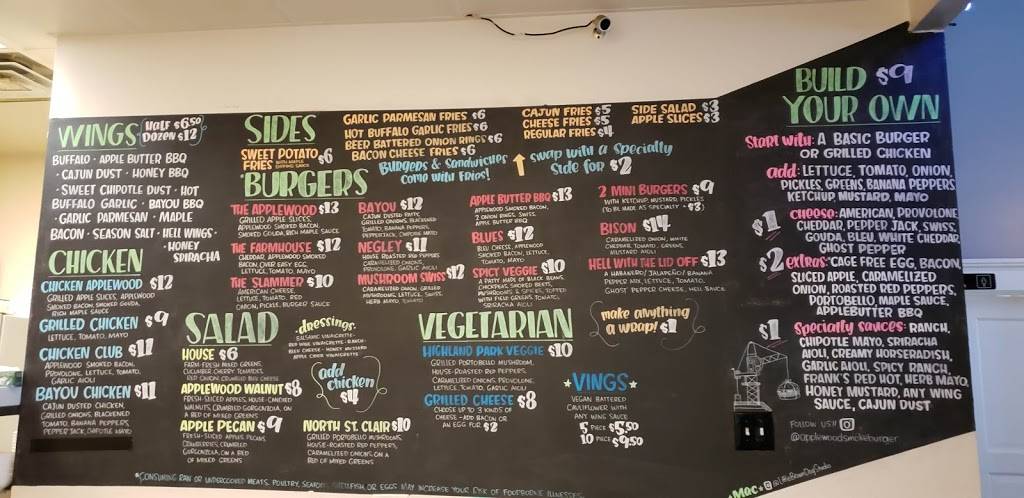 WINGS HALF $6.50
DOZEN $12
BUFFALO · APPLE BUTTER BBQ
· CAJUN DUST · HONEY BBQ
· SWEET CHIPOTLE DUST · HOT
BUFFALO GARLIC · BAYOU BBQ
· GARLIC PARMESAN · MAPLE
BACON · SEASON SALT · HELL WINGS ·
· HONEY
SRIRACHA
CHICKEN
CHICKEN APPLEWOOD $12
GRILLED APPLE SLICES, APPLEWOOD
SMOKED BACON, SMOKED GOUDA,
RICH MAPLE SAUCE
GRILLED CHICKEN $9
LETTUCE, TOMATO, MAYO
CHICKEN CLUB $11
APPLEWOOD SMOKED BACON,
PROVOLONE, LETTUCE, TOMATO,
GARLIC AIOLI
BAYOU CHICKEN $11
CAJUN DUSTED CHICKEN,
GRILLED ONIONS, BLACKENED
TOMATO, BANANA PEPPERS,
PEPPERJACK, CHIPOTLE MAYO
SIDES
SWEET POTATO $6
FRIES WITH MAPLE
DIPPING SAUCE
GARLIC PARMESAN FRIES $6
HOT BUFFALO GARLIC FRIES $6
BEER BATTERED ONION RINGS $6
BACON CHEESE FRIES $6
CAJUN FRIES $5
CHEESE FRIES $5
REGULAR FRIES $4
SIDE SALAD $3
APPLE SLICES $3
BURGERS & SANDWICHES
COME WITH FRIES!
SWAP WITH A SPECIALTY
SIDE FOR $2
BURGERS
THE APPLEWOOD $13
GRILLED APPLE SLICES,
APPLEWOOD SMOKED BACON,
SMOKED GOUDA, RICH MAPLE SAUCE
THE FARMHOUSE $12
CHEDDAR, APPLEWOOD SMOKED
BACON, OVER EASY EGG,
LETTUCE, TOMATO, MAYO
THE SLAMMER $10
AMERICAN CHEESE,
LETTUCE, TOMATO, RED
ONION, PICKLE, BURGER SAUCE
BAYOU $12
CAJUN DUSTED PATTY,
GRILLED ONIONS, BLACKENED
TOMATO, BANANA PEPPERS,
PEPPERJACK, CHIPOTLE MAYO
NEGLEY $11
HOUSE ROASTED RED PEPPERS
CARAMELIZED ONIONS,
PROVOLONE, GARLIC AIOLI
MUSHROOM SWISS $12
CARAMELIZED ONION, GRILLED
MUSHROOMS, LETTUCE, SWISS,
HERB MAYO, TOMATO
APPLE BUTTER BBQ $13
APPLEWOOD SMOKED BACON,
2 ONION RINGS, SWISS,
APPLE BUTTER BBQ
BLUES $12
BLEU CHEESE, APPLEWOOD
SMOKED BACON, LETTUCE,
TOMATO, MAYO
SPICY VEGGIE $10
A PATTY MADE OF BLACK BEANS,
CHICKPEAS, SMOKED BEETS,
MUSHROOMS & SPICES, TOPPED
WITH FIELD GREENS, TOMATO,
SRIRACHA AIOLI
2 MINI BURGERS $9
WITH KETCHUP, MUSTARD, PICKLES
(TO BE MADE AS SPECIALTY + $3)
BISON $14
CARAMELIZED ONION, WHITE
CHEDDAR, TOMATO, GREENS,
MUSTARD AIOLI
HELL WITH THE LID OFF $13
A HABANERO/JALAPEÑO/BANANA
PEPPER MIX, LETTUCE, TOMATO,
GHOST PEPPER CHEESE, HELL SAUCE
MAKE ANYTHING
A WRAP! $1
SALAD
·DRESSINGS·
BALSAMIC VINAIGRETTE ·
RED WINE VINAIGRETTE · RANCH ·
BLEU CHEESE · HONEY MUSTARD
APPLE CIDER VINAIGRETTE
HOUSE $6
FARM-FRESH MIXED GREENS,
CUCUMBER, CHERRY TOMATOES,
RED ONION, CRUMBLED BLEU CHEESE
APPLEWOOD WALNUT $8
FRESH-SLICED APPLES, HOUSE-CANDIED
WALNUTS, CRUMBLED GORGONZOLA, ON
A BED OF MIXED GREENS
APPLE PECAN $9
FRESH-SLICED APPLES, PECANS,
CRANBERRIES, CRUMBLED
GORGONZOLA, ON A BED
OF MIXED GREENS
ADD
CHICKEN
$4
NORTH ST. CLAIR $10
GRILLED PORTOBELLO MUSHROOMS,
HOUSE-ROASTED RED PEPPERS,
CARAMELIZED ONIONS, ON A
BED OF MIXED GREENS
VEGETARIAN
HIGHLAND PARK VEGGIE $10
GRILLED PORTOBELLO MUSHROOM,
HOUSE-ROASTED RED PEPPERS,
CARAMELIZED ONIONS, PROVOLONE,
LETTUCE, TOMATO, GARLIC AIOLI
GRILLED CHEESE $8
CHOOSE UP TO 3 KINDS OF
CHEESE - ADD BACON OR
AN EGG FOR $2
*VINGS*
VEGAN BATTERED
CAULIFLOWER WITH
ANY WING SAUCE
5 PIECE $5.50
10 PIECE $9.50
BUILD $9
YOUR OWN
START WITH: A BASIC BURGER
OR GRILLED CHICKEN
ADD: LETTUCE, TOMATO, ONION,
PICKLES, GREENS, BANANA PEPPERS,
KETCHUP, MUSTARD, MAYO
$1 CHOOSE: AMERICAN, PROVOLONE,
CHEDDAR, PEPPER JACK, SWISS,
GOUDA, BLEU, WHITE CHEDDAR,
GHOST PEPPER
$2 EXTRAS: CAGE FREE EGG, BACON,
SLICED APPLE, CARAMELIZED
ONION, ROASTED RED PEPPERS,
PORTOBELLO, MAPLE SAUCE,
APPLEBUTTER BBQ
$1 SPECIALTY SAUCES: RANCH,
CHIPOTLE MAYO, SRIRACHA
AIOLI, CREAMY HORSERADISH,
GARLIC AIOLI, SPICY RANCH,
FRANK'S RED HOT, HERB MAYO,
HONEY MUSTARD, ANY WING
SAUCE, CAJUN DUST
FOLLOW US!!
@applewoodsmokeburger
*CONSUMING RAW OR UNDERCOOKED MEATS, POULTRY, SEAFOOD, SHELLFISH, OR EGGS MAY INCREASE YOUR RISK OF FOODBORNE ILLNESSES.